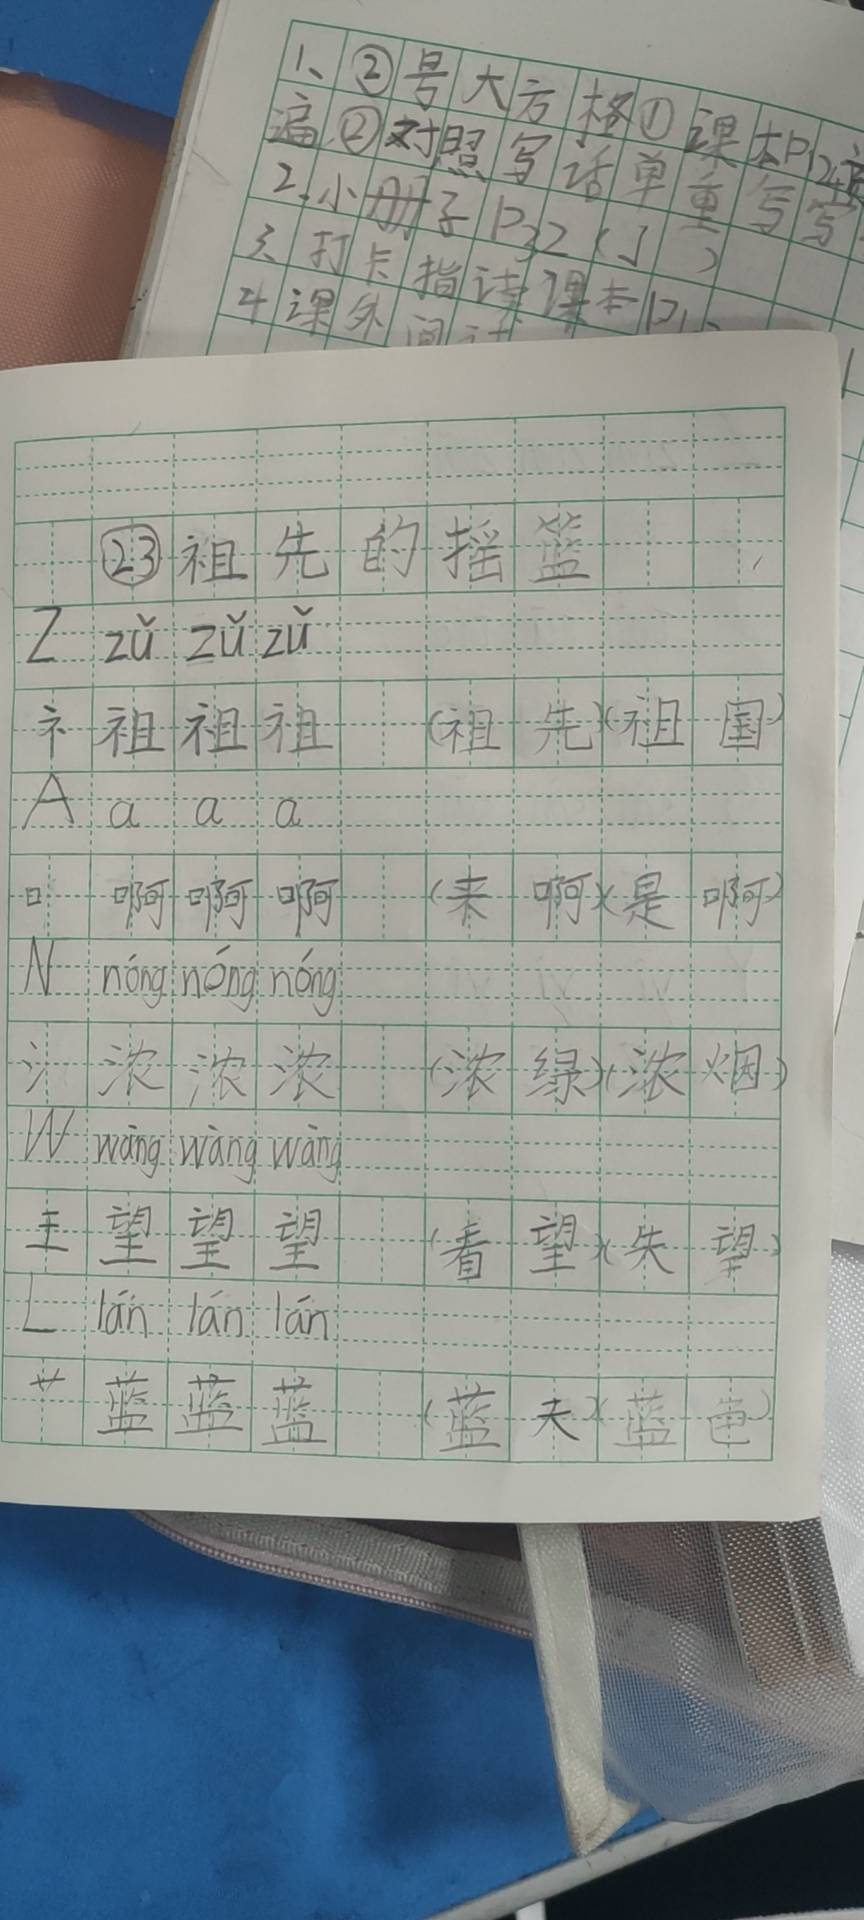 1、②号大方格①课本P124
遍②对照写话单重写写
2、小册子P32(√)
3、打卡指读课本P
4课外
㉓祖先的摇篮
Z zǔ zǔ zǔ
礻祖祖祖(祖先)(祖国)
A a a a
口啊啊啊(来啊)(是啊)
N nóng nóng nóng
氵浓浓浓(浓绿)(浓烟)
W wàng wàng wàng
王望望望(看望)(失望)
L lán lán lán
艹蓝蓝蓝(蓝天)(蓝色)